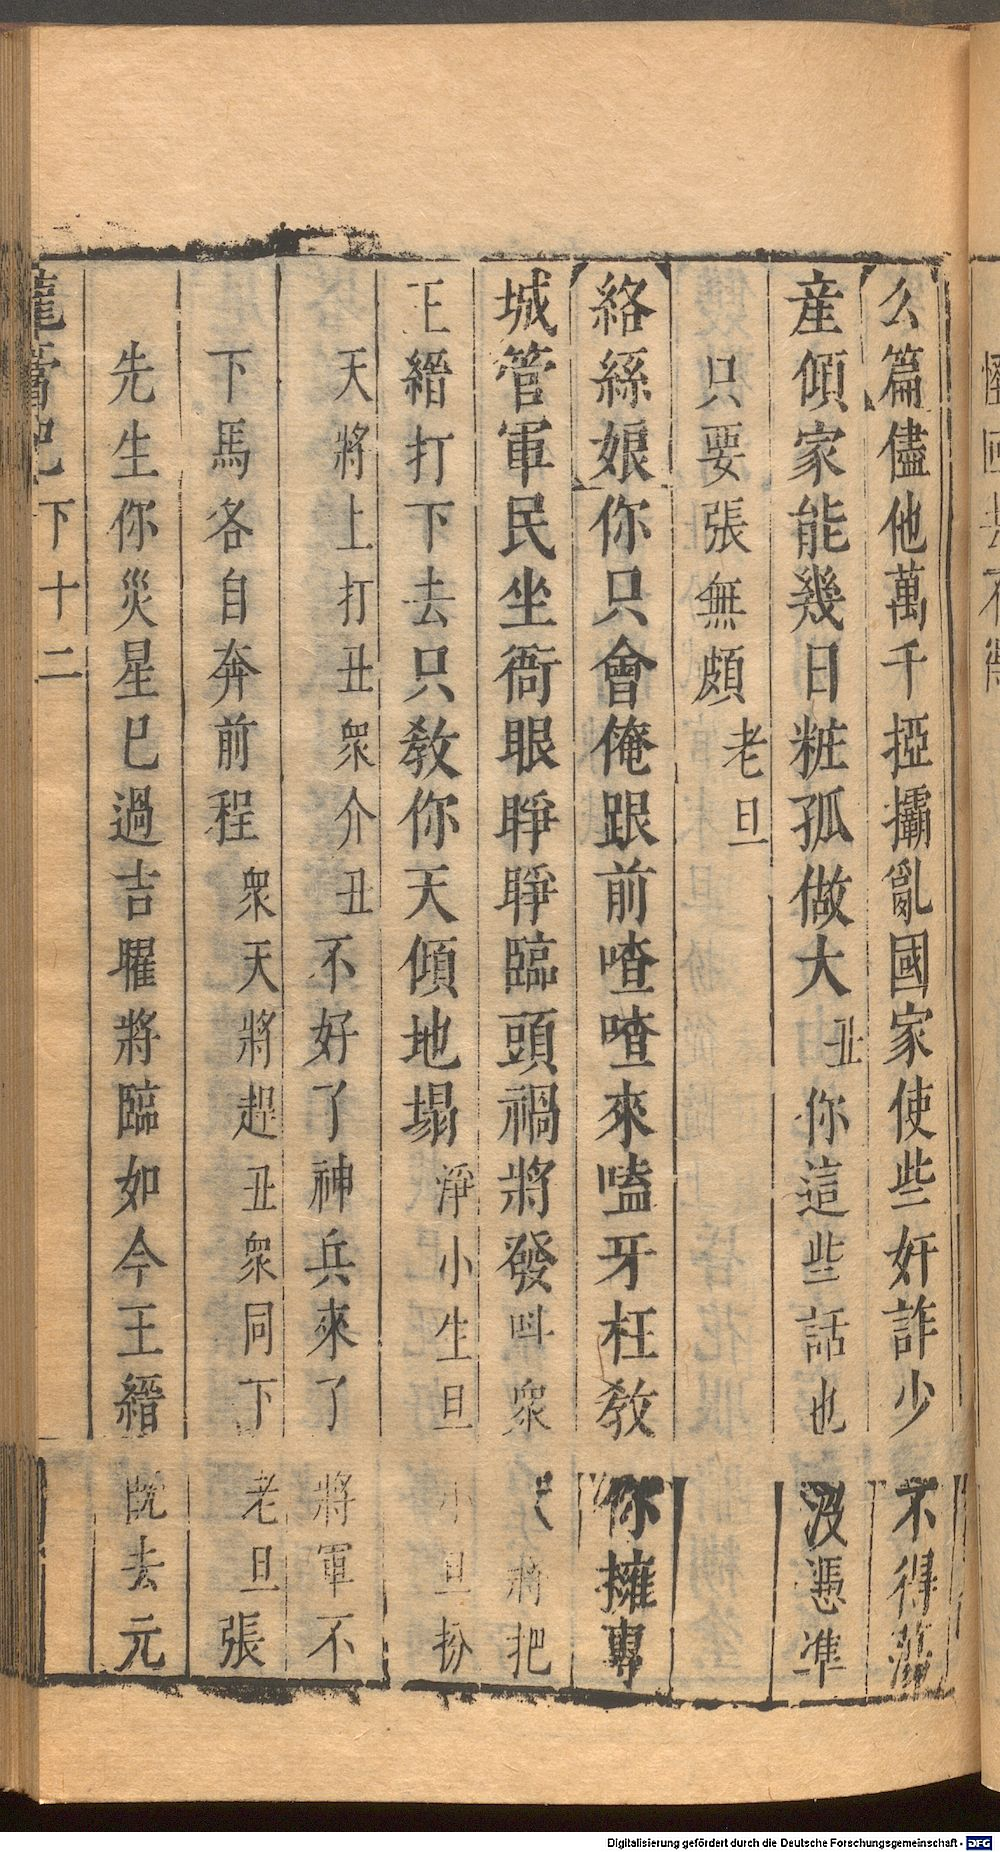 么篇儘他萬千掗攞亂國家使些奸詐少不得蕩
産傾家能幾日粧孤做大丑你這些話也没憑準
只要張無頗老旦
絡絲娘你只會俺跟前喳喳來嗑牙枉教你擁專
城管軍民坐衙眼睜睜臨頭禍將發呌衆將把
王縉打下去只教你天傾地塌淨小生旦小旦扮
天將上打丑衆介丑不好了神兵來了將軍不
下馬各自奔前程衆天將趕丑衆同下老旦張
先生你災星已過吉曜將臨如今王縉旣去元
龍膏記 下 十二
Digitalisierung gefördert durch die Deutsche Forschungsgemeinschaft - DFG